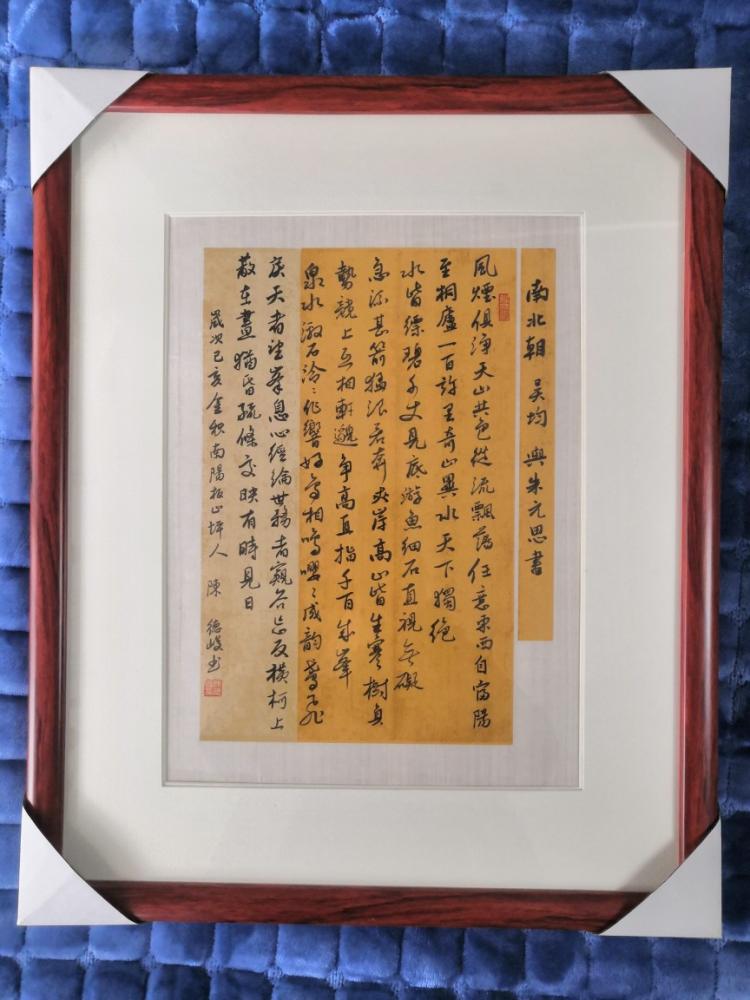 南北朝 吴均 與朱元思書
風煙俱淨天山共色從流飄蕩任意東西自富陽
至桐廬一百許里奇山異水天下獨絕
水皆縹碧千丈見底游魚細石直視無礙
急湍甚箭猛浪若奔夾岸高山皆生寒樹負
勢競上互相軒邈爭高直指千百成峯
泉水激石泠〻作響好鳥相鳴嚶〻成韵鳶飛
戾天者望峯息心經綸世務者窺谷忘反橫柯上
蔽在晝猶昏疏條交映有時見日
歲次己亥金秋南陽板山坪人 陳德峻书